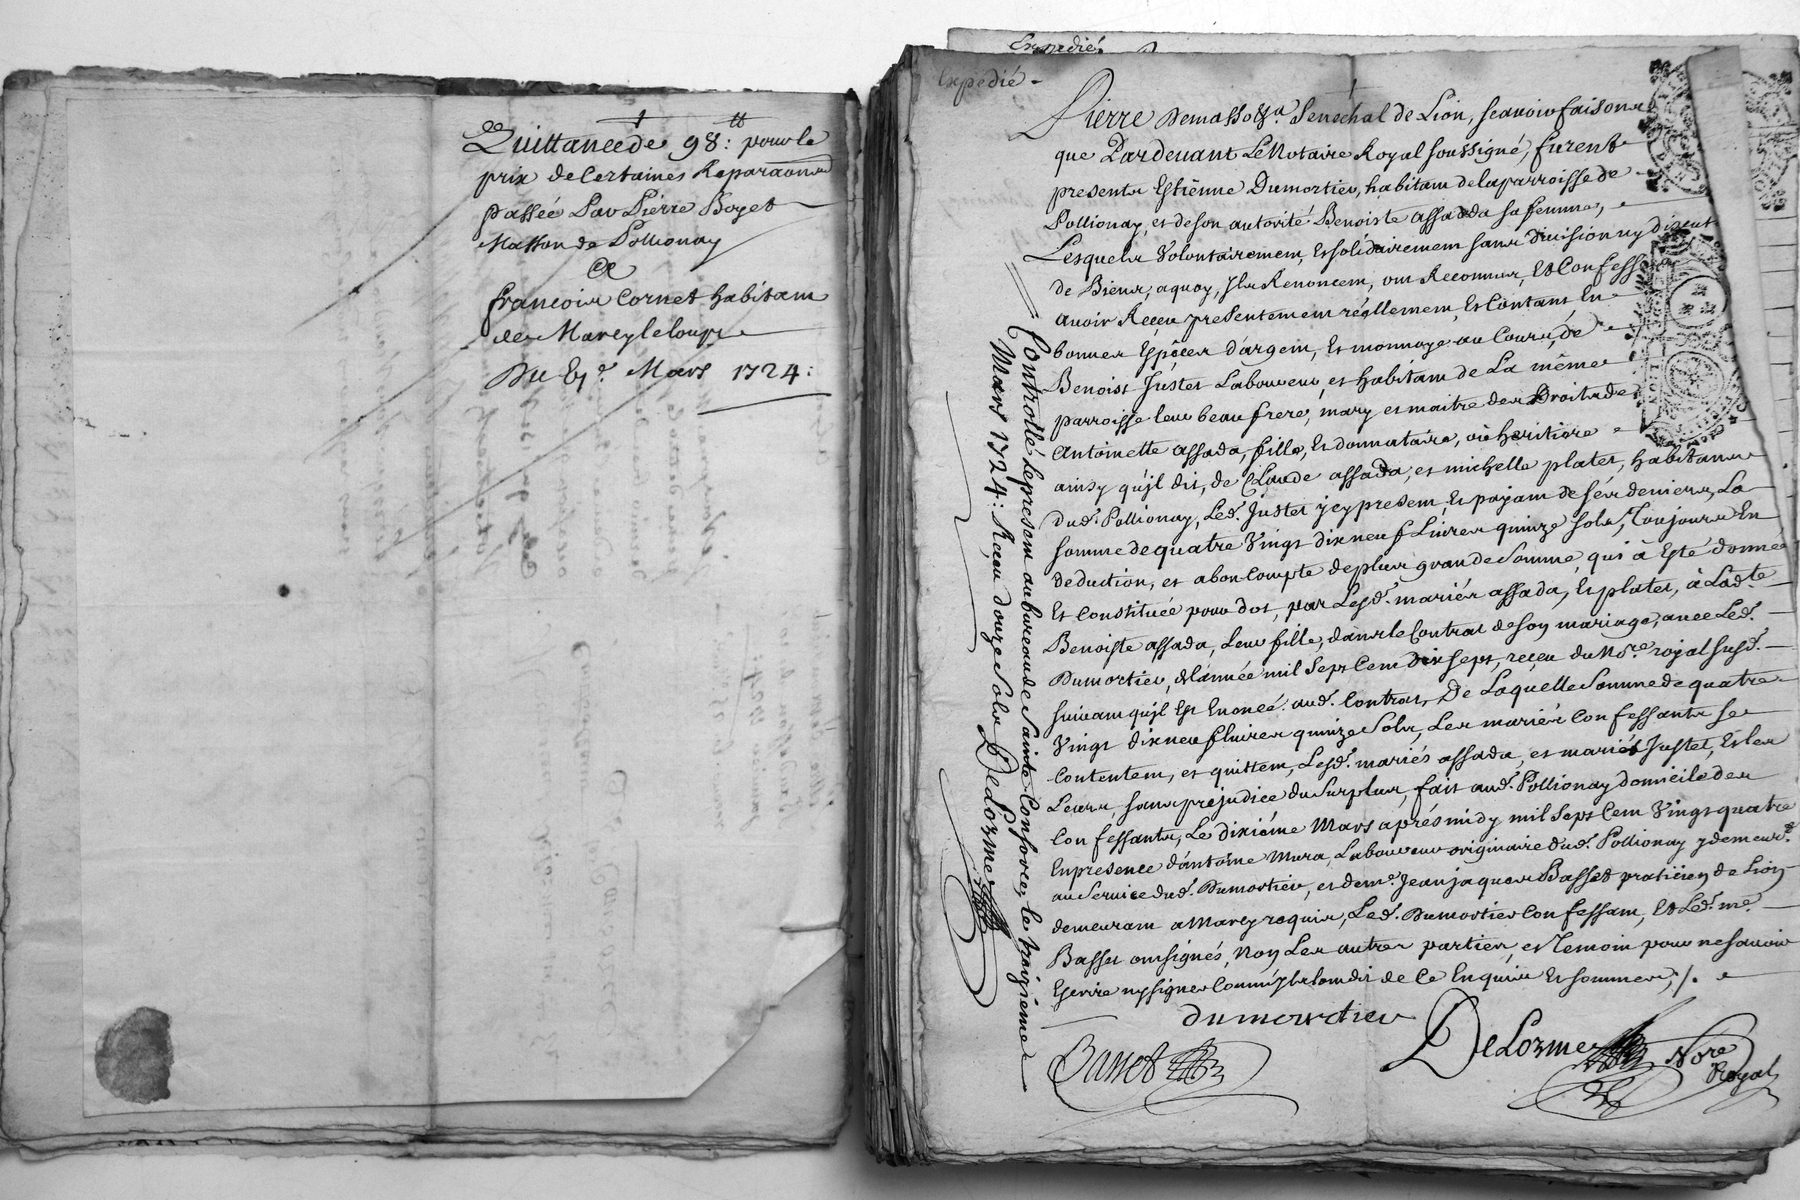 Quittance de 98:tt pour le
prix de Certaines Reparaons
passée Par Pierre Boyet
Masson de Pollionay
A
francois Cornet habitam
de Marcyleloup
Du Mars 1724:
Expedié
Expedié
Pierre Demasso Senechal de Lion, scavoir faisons
que Pardeuant Le Notaire Royal soussigné, furent
presents Estienne Dumortier, habitam de la parroisse de
Pollionay, et de son autorité Benoiste assada sa femme,
Lesquels Volontairemem, Et solidairemem sans diuision ny discut
de Biens, a quoy, Jls Renoncem, om Reconnus, Et Confess
auoir Receu presentemem réellemem, Et Contant En
bonnes Espéces d'argem, Et monnoye au Cours, de
Benoist Justet Laboureur, et habitam de La même
parroisse leur beau frere, mary et maitre des Droits de
Antoinette assada, fille, Et donnataire, où heritiere
ainsy qu'jl dit, de Claude assada, et michelle platet, habitans
dud. Pollionay, Led. Justet jcy presem, Et payam de sés deniers, La
somme de quatre Vingt dix neuf Liures quinze sols, Toujours En
deduction, et a bon Compte de plus grande somme, qui à Esté donnée
Et Constituée pour dot, par Lesd. mariés assada, Et platet, à Ladte
Benoiste assada, Leur fille, dans le Contrat de son mariage, auec Led.
Dumortier, de l'année mil Sept Cem dix sept, reçeu du Nre. royal susd.
suiuam qu'jl Est Enoncé aud. Contrat, De Laquelle Somme de quatre
Vingt dix neuf liures quinze Sols, Les mariés Confessants se
Contentem, et quittem, Lesd. mariés assada, et mariés Justet, Et les
Leurs, sans préjudice du Surplus, fait aud. Pollionay domicile des
Confessants, Le dixiéme Mars aprés midy mil Sept Cem Vingt quatre
En presence d'antoine Mura, Laboureur originaire dud. Pollionay y demeurt.
au Seruice dud. Dumortier, et de me. Jean jaques Basset praticien de Lion
demeuram a Marcy requis, Led. Dumortier Confessam, Et Led. me.
Basset om signés, Non Les autres parties, et Temoin pour ne sauoir
Escrire ny signer Comme jls ont dit de Ce Enquis Et sommes ./.
dumourtier
Basset
DeLorme Nore Royal
Controllé le presem au bureau de Sainte Consorce, le treiziéme
Mars 1724: Receu douze Sols DeLorme